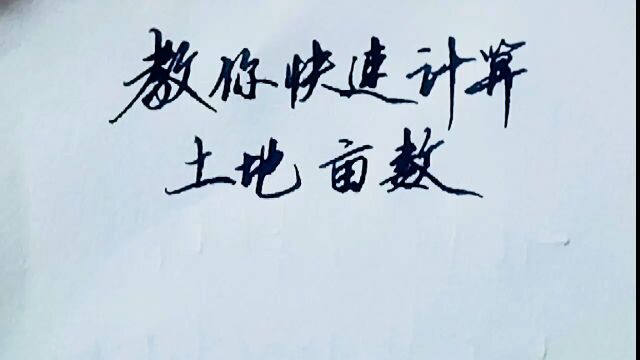 教你快速计算
土地亩数